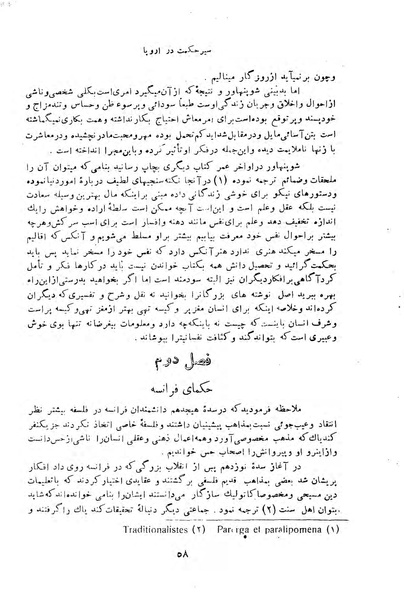 سیر حکمت در اروپا
وچون برنمیآید ازروزگار مینالیم .
اما بدبینی شوپنهاور و نتیجهٔ که از آن میگیرد امری است بکلی شخصی و ناشی
از احوال و اخلاق و جریان زندگانی او ست طبعاً سودائی و پرسوءظن و حساس و تندمزاج و
خودپسند و پرتوقع بوده است برای امر معاش احتیاج بکار نداشته وهمکاری نمیگماشته
است بتن آسائی مایل و در مقابل شداید کم تحمل بوده مهر و محبت مادر نچشیده و در معاشرت
با زنها ناملایمت دیده و این جمله در فکر او تأثیر کرده و باین مجرا انداخته است .
شوپنهاور در اواخر عمر کتاب دیگری بچاپ رسانید بنامی که میتوان آن را
ملحقات و ضمائم ترجمه نموده (۱) در آنجا نکته سنجیهای لطیف دربارهٔ امور دنیا نموده
و دستورهای نیکو برای خوشی زندگانی داده مبنی براینکه مال بهترین وسیله سعادت
نیست بلکه عقل وعلم است و این است آنچه ممکن است سلطهٔ اراده و خواهش را یک
اندازه تخفیف دهد وعلم برای نفس مانند دهنه و افسار است برای اسب سرکش و هرچه
بیشتر بر احوال نفس خود معرفت بیابیم بیشتر بر او مسلط میشویم و آنکس که اقالیم
را مسخر میکند هنری ندارد هنر آنکس دارد که نفس خود را مسخر نماید پس باید
بحکمت گرائید و تحصیل دانش همه بکتاب خواندن نیست باید در کارها فکر و تأمل
کرد آگاهی برافکار دیگران نیز البته سودمند است اما اگر بخواهید بدرستی از این راه
بهره ببرید اصل نوشته های بزرگان را بخوانید نه نقل و شرح و تفسیری که دیگران
کرده‌اند و خلاصه اینکه برای انسان مغز پر و کیسه تهی بهتر از مغز تهی و کیسه پر است
و شرف انسان باینست که چیست نه باینکه چه دارد و معلومات بیغرضانه تنها بوی خوش
و عبیری است که بتواند گند و کثافت نفسانیت را بپوشاند .
فصل دوم
حکمای فرانسه
ملاحظه فرمودید که درسدهٔ هیجدهم دانشمندان فرانسه در فلسفه بیشتر نظر
انتقاد و عیب جوئی نسبت بمذاهب پیشینیان داشتند و فلسفهٔ خاصی اتخاذ نکردند جز یکنفر
کندیاک که مذهب مخصوصی آورد و همه اعمال ذهنی و عقلی انسان را ناشی از حس دانست
و از اینرو او و پیروانش را اصحاب حس خواندیم .
در آغاز سدهٔ نوزدهم پس از انقلاب بزرگی که در فرانسه روی داد افکار
پریشان شد بعضی بمذاهب قدیم فلسفی برگشتند و عقایدی اختیار کردند که با تعلیمات
دین مسیحی و مخصوصا کاتولیک سازگار می‌دانستند ایشان را بنامی خوانده‌اند که شاید
بتوان اهل سنت (۲) ترجمه نمود . جماعتی دیگر دنبالهٔ تحقیقات کندیاک را گرفتند و
Traditionalistes (۲)   Parerga et paralipomena (۱)
۵۸